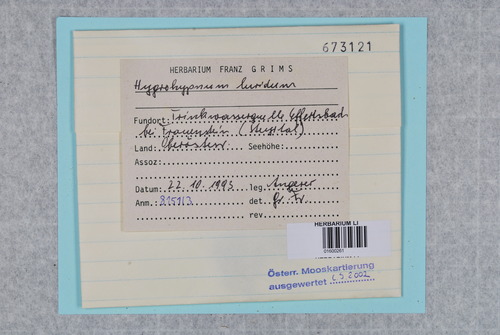 673121
HERBARIUM FRANZ GRIMS
Hygrohypnum luridum
Fundort: Trinkwasserquelle Effertsbad
bei Frauenstein (Steyrtal)
Land: Oberösterr. Seehöhe:
Assoz:
Datum: 22.10.1993 leg. Angerer
Anm.: 8151/3 det. Gr. Fr.
rev.
HERBARIUM LI
Österr. Mooskartierung
ausgewertet 2002